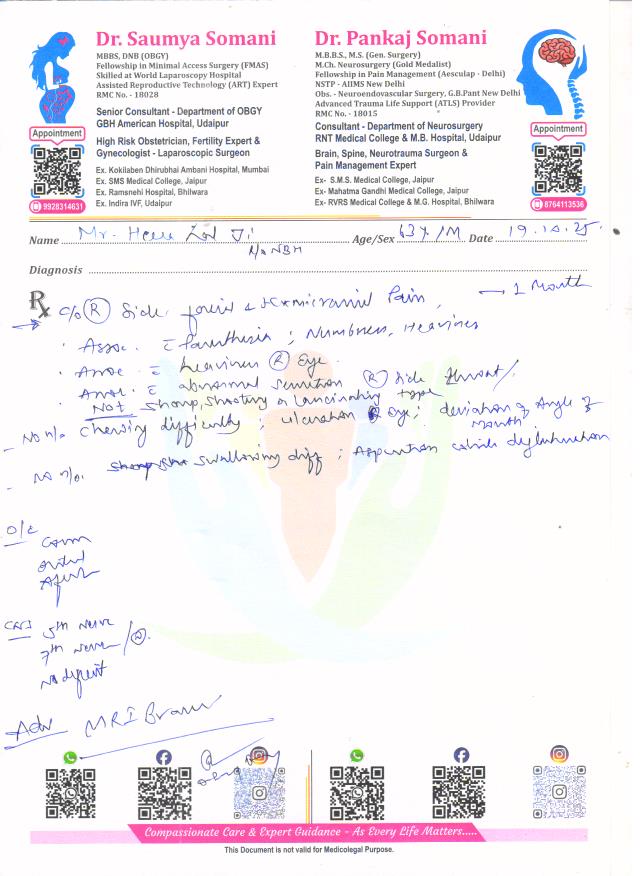 Dr. Saumya Somani
MBBS, DNB (OBGY)
Fellowship in Minimal Access Surgery (FMAS)
Skilled at World Laparoscopy Hospital
Assisted Reproductive Technology (ART) Expert
RMC No. - 18028
Senior Consultant - Department of OBGY
GBH American Hospital, Udaipur
High Risk Obstetrician, Fertility Expert &
Gynecologist - Laparoscopic Surgeon
Ex. Kokilaben Dhirubhai Ambani Hospital, Mumbai
Ex. SMS Medical College, Jaipur
Ex. Ramsnehi Hospital, Bhilwara
Ex. Indira IVF, Udaipur
Appointment
9928314631
Dr. Pankaj Somani
M.B.B.S., M.S. (Gen. Surgery)
M.Ch. Neurosurgery (Gold Medalist)
Fellowship in Pain Management (Aesculap - Delhi)
NSTP - AIIMS New Delhi
Obs. - Neuroendovascular Surgery, G.B.Pant New Delhi
Advanced Trauma Life Support (ATLS) Provider
RMC No. - 18015
Consultant - Department of Neurosurgery
RNT Medical College & M.B. Hospital, Udaipur
Brain, Spine, Neurotrauma Surgeon &
Pain Management Expert
Ex- S.M.S. Medical College, Jaipur
Ex- Mahatma Gandhi Medical College, Jaipur
Ex- RVRS Medical College & M.G. Hospital, Bhilwara
Appointment
8764113536
Name Mr. Ji Age/Sex 63Y/M Date 19.10.25
Diagnosis
Rx c/o (R) Side Pain, → 1 Month
Assoc. Numbness, Heaviness
Assoc. heaviness (R) Eye.
Assoc. abnormal (R) Side throat
Not Sharp, Shooting or Lancinating type
- No h/o. Chewing difficulty; ulceration Eye; deviation of Angle of Mouth
- No h/o. swallowing diff;
O/E
CNS 5th Nerve
7th Nerve
No deficit
Adv MRI Brain
Compassionate Care & Expert Guidance - As Every Life Matters.....
This Document is not valid for Medicolegal Purpose.